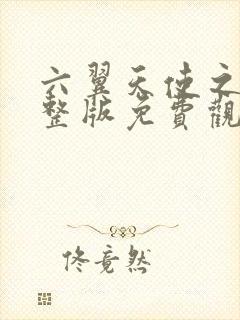 六翼天使之
整版免費觀
佟竟然